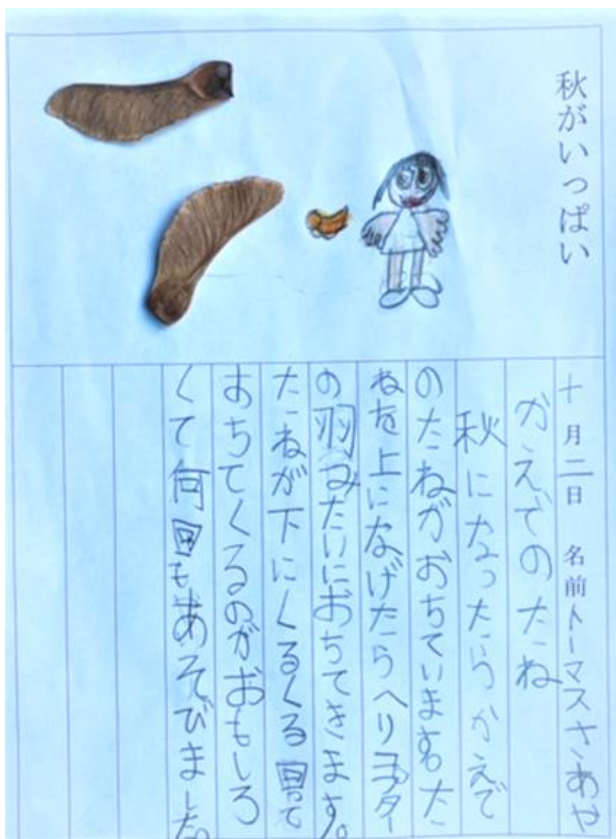 秋がいっぱい
十月二日 名前トーマスさあや
かえでのたね
秋になったらかえで
のたねがおちています。た
ねを上になげたらヘリコプター
の羽みたいにおちてきます。
たねが下にくるくる回って
おちてくるのがおもしろ
くて何回もあそびました。